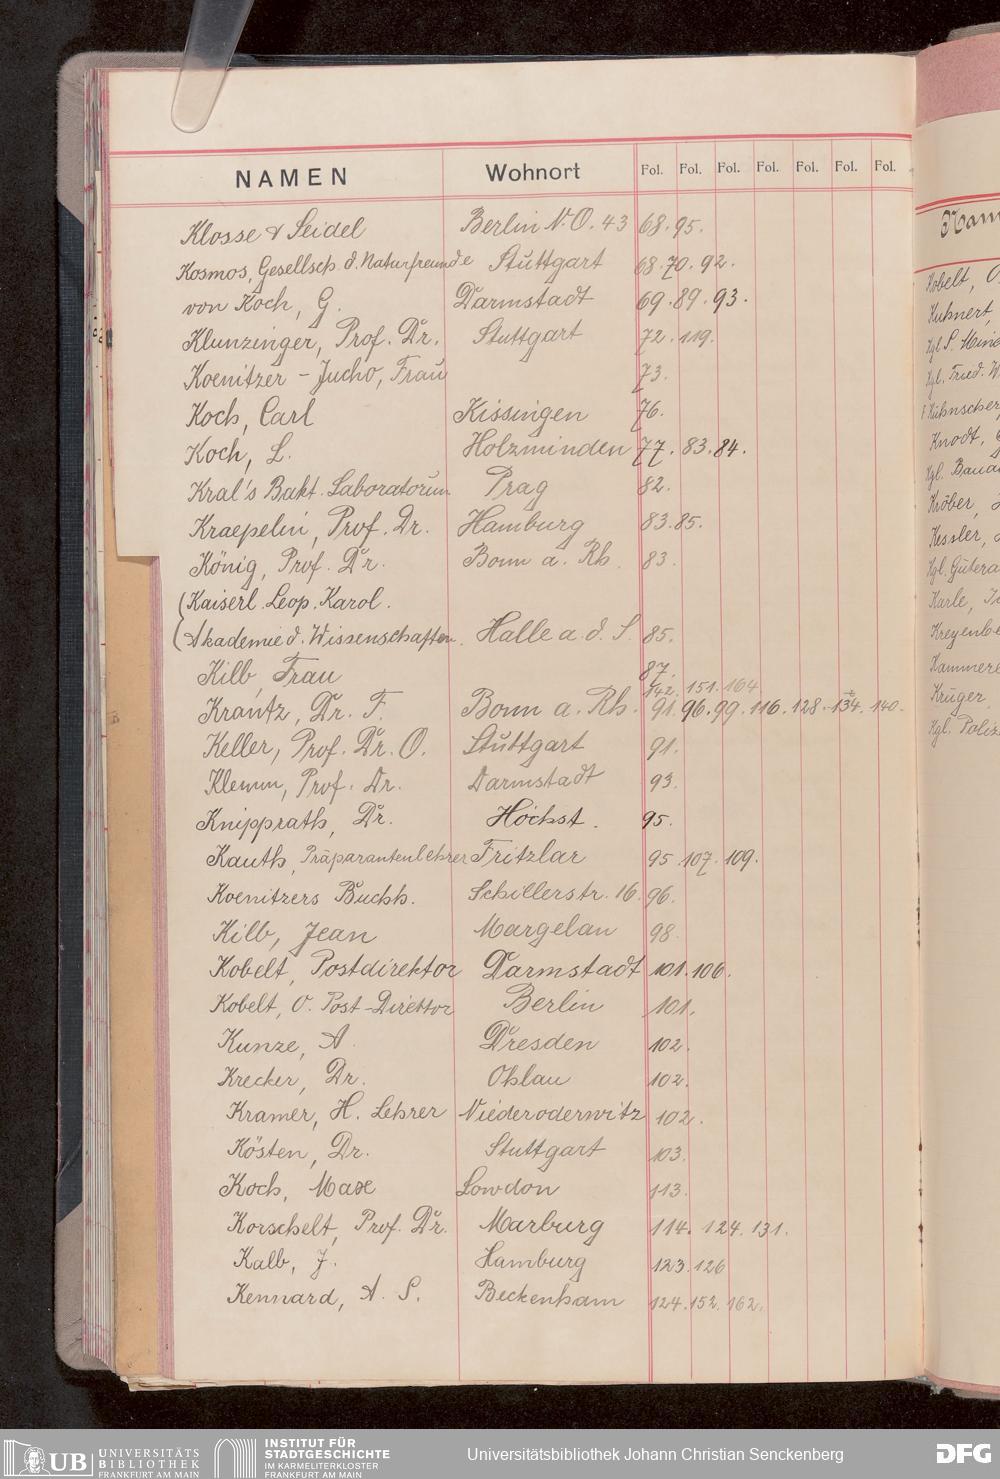 NAMEN Wohnort Fol. Fol. Fol. Fol. Fol. Fol. Fol.
Klosse & Seidel Berlin N.O. 43 68. 95.
Kosmos, Gesellsch. d. Naturfreunde Stuttgart 68. 70. 92.
von Koch, G. Darmstadt 69. 89. 93.
Klunzinger, Prof. Dr. Stuttgart 72. 119.
Koenitzer - Jucho, Frau 73.
Koch, Carl Kissingen 76.
Koch, L. Holzminden 77. 83. 84.
Kral's Bakt. Laboratorium Prag 82.
Kraepelin, Prof. Dr. Hamburg 83. 85.
König, Prof. Dr. Bonn a. Rh. 83.
(Kaiserl. Leop. Karol.
(Akademie d. Wissenschaften. Halle a. d. S. 85.
Kilb, Frau 87.
142. 151. 164.
Krantz, Dr. F. Bonn a. Rh. 91. 96. 99. 116. 128. 134. 140.
Keller, Prof. Dr. O. Stuttgart 91.
Klemm, Prof. Dr. Darmstadt 93.
Knipprath, Dr. Höchst. 95.
Kauth, Präparantenlehrer Fritzlar 95. 107. 109.
Koenitzers Buchh. Schillerstr. 16. 96.
Kilb, Jean Margelan 98.
Kobelt, Postdirektor Darmstadt 101. 106.
Kobelt, O. Post-Direktor Berlin 101.
Kunze, A. Dresden 102.
Krecker, Dr. Ohlau 102.
Kramer, H. Lehrer Niederoderwitz 102.
Kösten, Dr. Stuttgart 103.
Koch, Max Lowdon 113.
Korschelt, Prof. Dr. Marburg 114. 124. 131.
Kalb, J. Hamburg 123. 126
Kennard, A. S. Beckenham 124. 152. 162.
Kobelt,
Kuhnert,
Knodt,
Kröber,
Kessler,
Karle,
Krüger
UB UNIVERSITÄTS
BIBLIOTHEK
FRANKFURT AM MAIN
INSTITUT FÜR
STADTGESCHICHTE
IM KARMELITERKLOSTER
FRANKFURT AM MAIN
Universitätsbibliothek Johann Christian Senckenberg
DFG